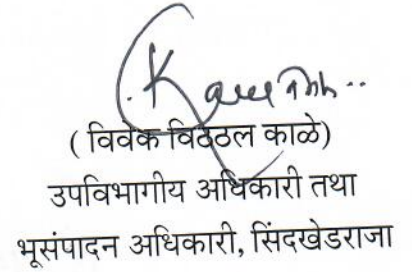 ( विवेक विठठल काळे)
उपविभागीय अधिकारी तथा
भूसंपादन अधिकारी, सिंदखेडराजा